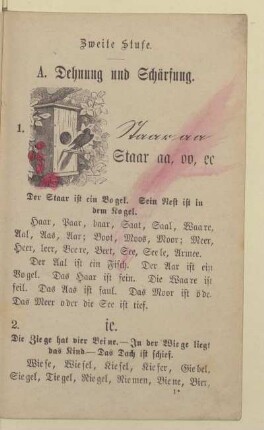 Zweite Stufe.
A. Dehnung und Schärfung.
1.
Staar aa
Staar aa, oo, ee
Der Staar ist ein Vogel. Sein Nest ist in
dem Kogel.
Haar, Paar, baar, Saat, Saal, Waare,
Aal, Aas, Aar; Boot, Moos, Moor; Meer,
Heer, leer, Beere, Beet, See, Seele, Armee.
Der Aal ist ein Fisch. Der Aar ist ein
Vogel. Das Haar ist fein. Die Waare ist
feil. Das Aas ist faul. Das Moor ist öde.
Das Meer oder die See ist tief.
2. ie.
Die Ziege hat vier Beine. — In der Wiege liegt
das Kind — Das Dach ist schief.
Wiese, Wiesel, Kiesel, Kiefer, Giebel,
Siegel, Tiegel, Riegel, Riemen, Biene, Bier,